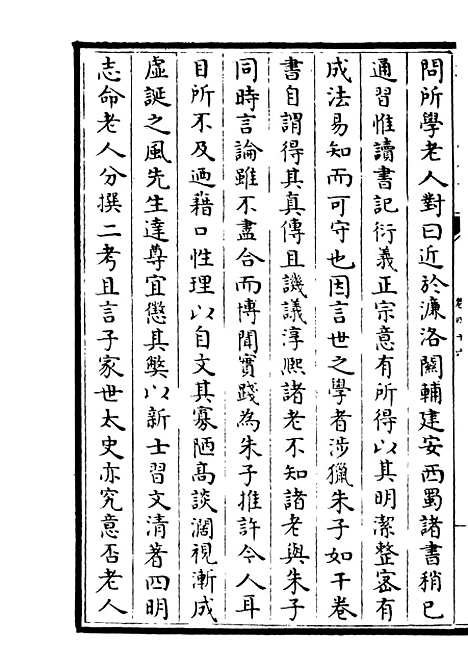 問所學老人對曰近於濂洛關輔建安西蜀諸書稍已
通習惟讀書記衍義正宗意有所得以其明潔整宻有
成法易知而可守也因言世之學者涉獵朱子如干卷
書自謂得其真傳且譏議淳熙諸老不知諸老與朱子
同時言論雖不盡合而博聞實踐為朱子推許今人耳
目所不及廼藉口性理以自文其寡陋髙談濶視漸成
虛誕之風先生達尊宜懲其獘以新士習文清著四明
志命老人分撰二考且言子家世太史亦究意否老人